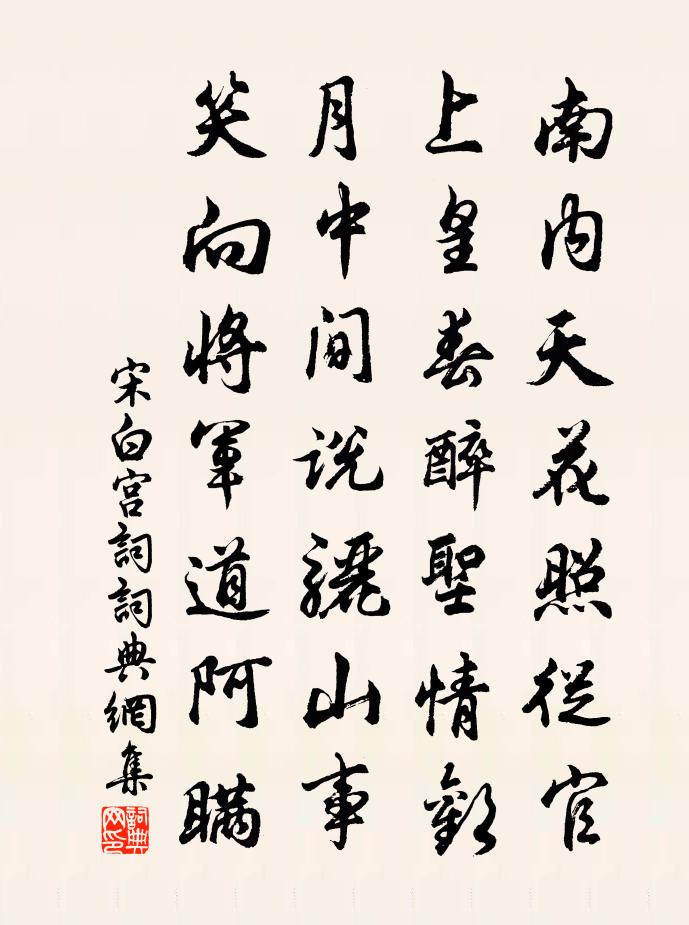 南内天花照從官
上皇春醉聖情歡
月中間説驪山事
笑向將軍道阿瞞
宋白宫詞詞典網集
詞典網印